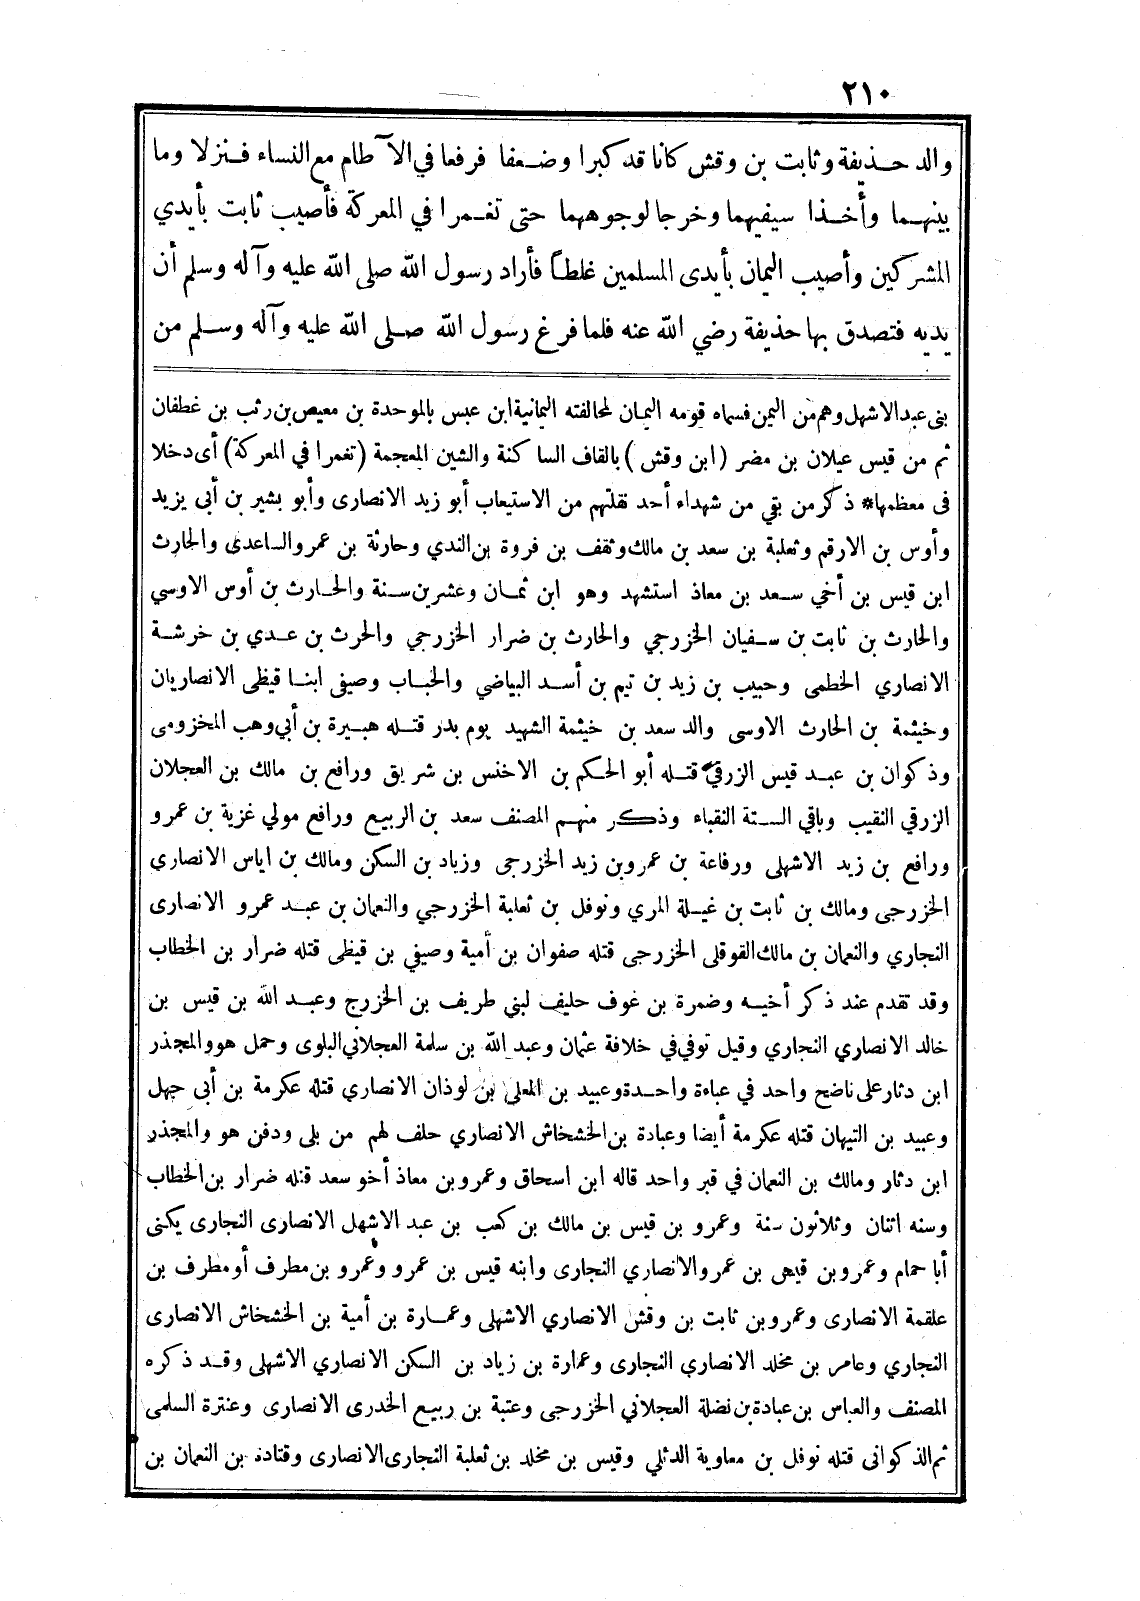 ٢١٠
والد حذيفة وثابت بن وقش كانا قد كبرا وضعفا فرفعا في الآطام مع النساء فنزلا وما
بينهما وأخذا سيفيهما وخرجا لوجوههما حتى تغمرا في المعركة فأصيب ثابت بأيدي
المشركين وأصيب اليمان بأيدى المسلمين غلطاً فأراد رسول الله صلى الله عليه وآله وسلم أن
يديه فتصدق بها حذيفة رضي الله عنه فلما فرغ رسول الله صلى الله عليه وآله وسلم من
بنى عبد الاشهل وهم من اليمن فسماه قومه اليمان لمحالفته اليمانية ابن عبس بالموحدة بن معيص بن رئب بن غطفان
ثم من قيس عيلان بن مضر (ابن وقش) بالقاف الساكنة والشين المعجمة (تغمرا في المعركة) أى دخلا
فى معظمها* ذكر من بقي من شهداء أحد نقلتهم من الاستيعاب أبو زيد الانصارى وأبو بشير بن أبى يزيد
وأوس بن الارقم وثعلبة بن سعد بن مالك وثقف بن فروة بن الندي وحارثة بن عمرو الساعدى والحارث
ابن قيس بن أخي سعد بن معاذ استشهد وهو ابن ثمان وعشرين سنة والحارث بن أوس الاوسي
والحارث بن ثابت بن سفيان الخزرجي والحارث بن ضرار الخزرجي والحرث بن عدي بن خرشة
الانصاري الخطمى وحبيب بن زيد بن تيم بن أسد البياضي والخباب وصيفى ابنا قيظى الانصاريان
وخيثمة بن الحارث الاوسى والد سعد بن خيثمة الشهيد يوم بدر قتله هبيرة بن أبي وهب المخزومى
وذكوان بن عبد قيس الزرقي قتله أبو الحكم بن الاخنس بن شريق ورافع بن مالك بن العجلان
الزرقي النقيب وباقي الستة النقباء وذكر منهم المصنف سعد بن الربيع ورافع مولي غزية بن عمرو
ورافع بن زيد الاشهلى ورفاعة بن عمرو بن زيد الخزرجى وزياد بن السكن ومالك بن اياس الانصاري
الخزرجى ومالك بن ثابت بن غيلة المري ونوفل بن ثعلبة الخزرجي والنعمان بن عبد عمرو الانصارى
النجاري والنعمان بن مالك القوقلى الخزرجى قتله صفوان بن أمية وصيفي بن قيظى قتله ضرار بن الخطاب
وقد تقدم عند ذكر أخيه وضمرة بن غوف حليف لبني طريف بن الخزرج وعبد الله بن قيس بن
خالد الانصاري النجاري وقيل توفي في خلافة عثمان وعبد الله بن سلمة العجلاني البلوى وحمل هو والمجذر
ابن دثار على ناضح واحد في عباءة واحدة وعبيد بن المعلى بن لوذان الانصاري قتله عكرمة بن أبي جهل
وعبيد بن التيهان قتله عكرمة أيضا وعبادة بن الخشخاش الانصاري حلف لهم من بلى ودفن هو والمجذر
ابن دثار ومالك بن النعمان في قبر واحد قاله ابن اسحاق وعمرو بن معاذ أخو سعد قتله ضرار بن الخطاب
وسنه اثنان وثلاثون سنة وعمرو بن قيس بن مالك بن كعب بن عبد الاشهل الانصارى النجارى يكنى
أبا حمام وعمرو بن قيس بن عمرو الانصاري النجارى وابنه قيس بن عمرو وعمرو بن مطرف أو مطرف بن
علقمة الانصارى وعمرو بن ثابت بن وقش الانصاري الاشهلى وعمارة بن أمية بن الخشخاش الانصارى
النجاري وعامر بن مخلد الانصاري النجارى وعمارة بن زياد بن السكن الانصاري الاشهلى وقد ذكره
المصنف والعباس بن عبادة بن نضلة العجلاني الخزرجى وعتبة بن ربيع الخدرى الانصارى وعنترة السلمى
ثم الذكوانى قتله نوفل بن معاوية الدئلي وقيس بن مخلد بن ثعلبة النجارى الانصارى وقتادة بن النعمان بن